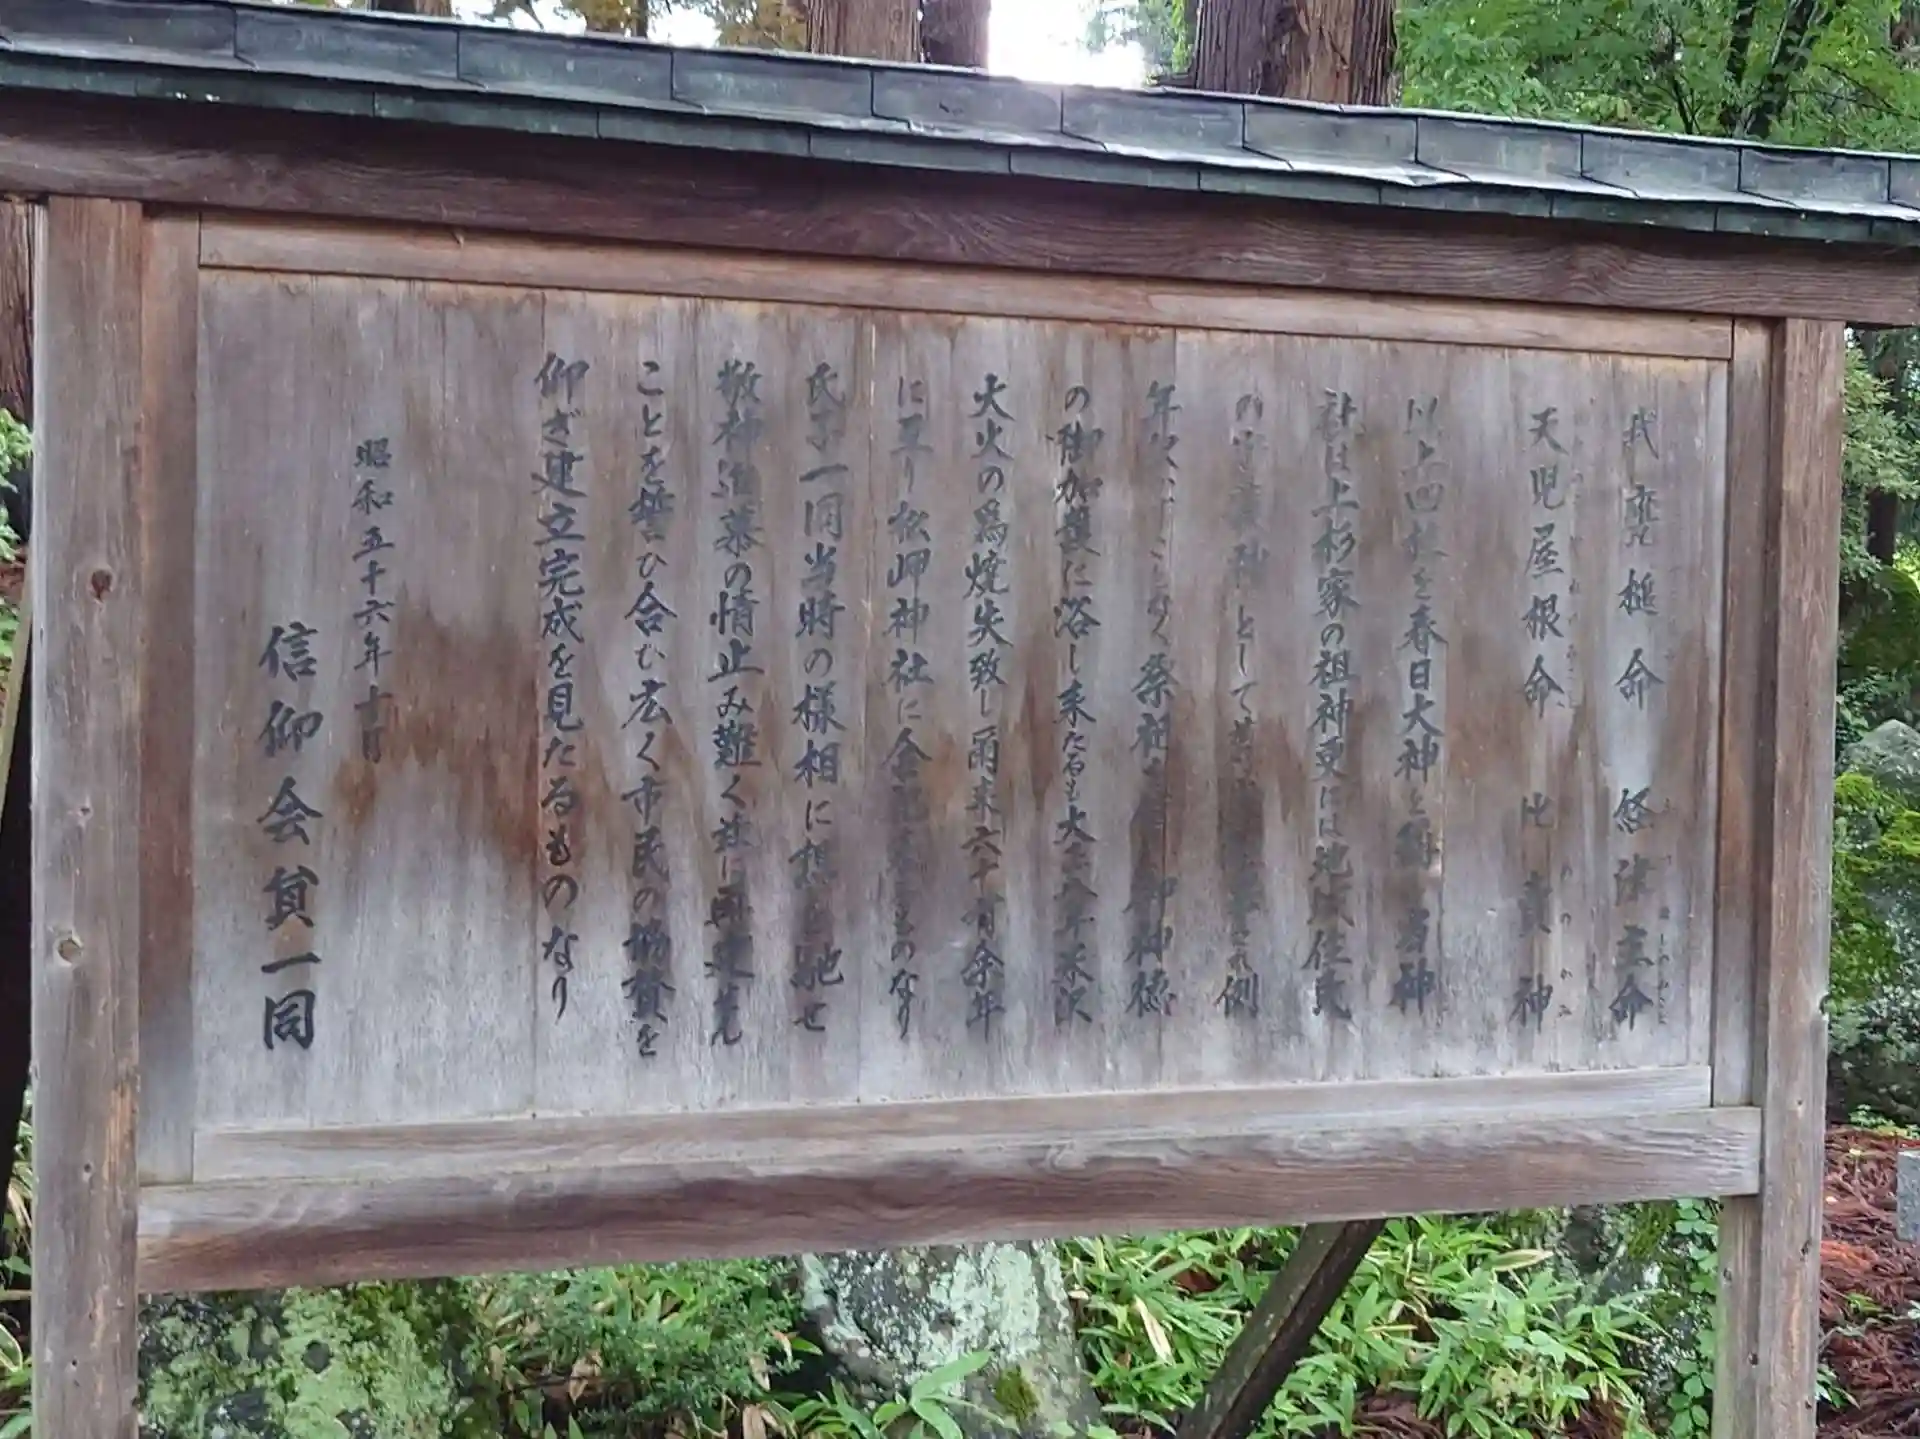 武甕槌命 経津主命
天児屋根命 比売神
以上四柱を春日大神と 神
社は上杉家の祖神更には地域住民
の守護神として 側
年 ことなく祭祀 御神徳
の御加護に浴し来たるも大正六年米沢
大火の為焼失致し爾来六十有余年
に亘り松岬神社に合祀 ものなり
氏子一同当時の様相に想を馳せ
敬神追慕の情止み難く茲に再建せん
ことを誓ひ合ひ広く市民の協賛を
仰ぎ建立完成を見たるものなり
昭和五十六年十月
信仰会員一同